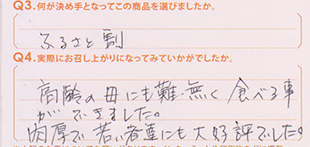 Q3.何が決め手となってこの商品を選びましたか。
ふるさと割
Q4.実際にお召し上がりになってみていかがでしたか。
高齢の母にも難無く食べる事
ができました。
肉厚で若い者達にも大好評でした。